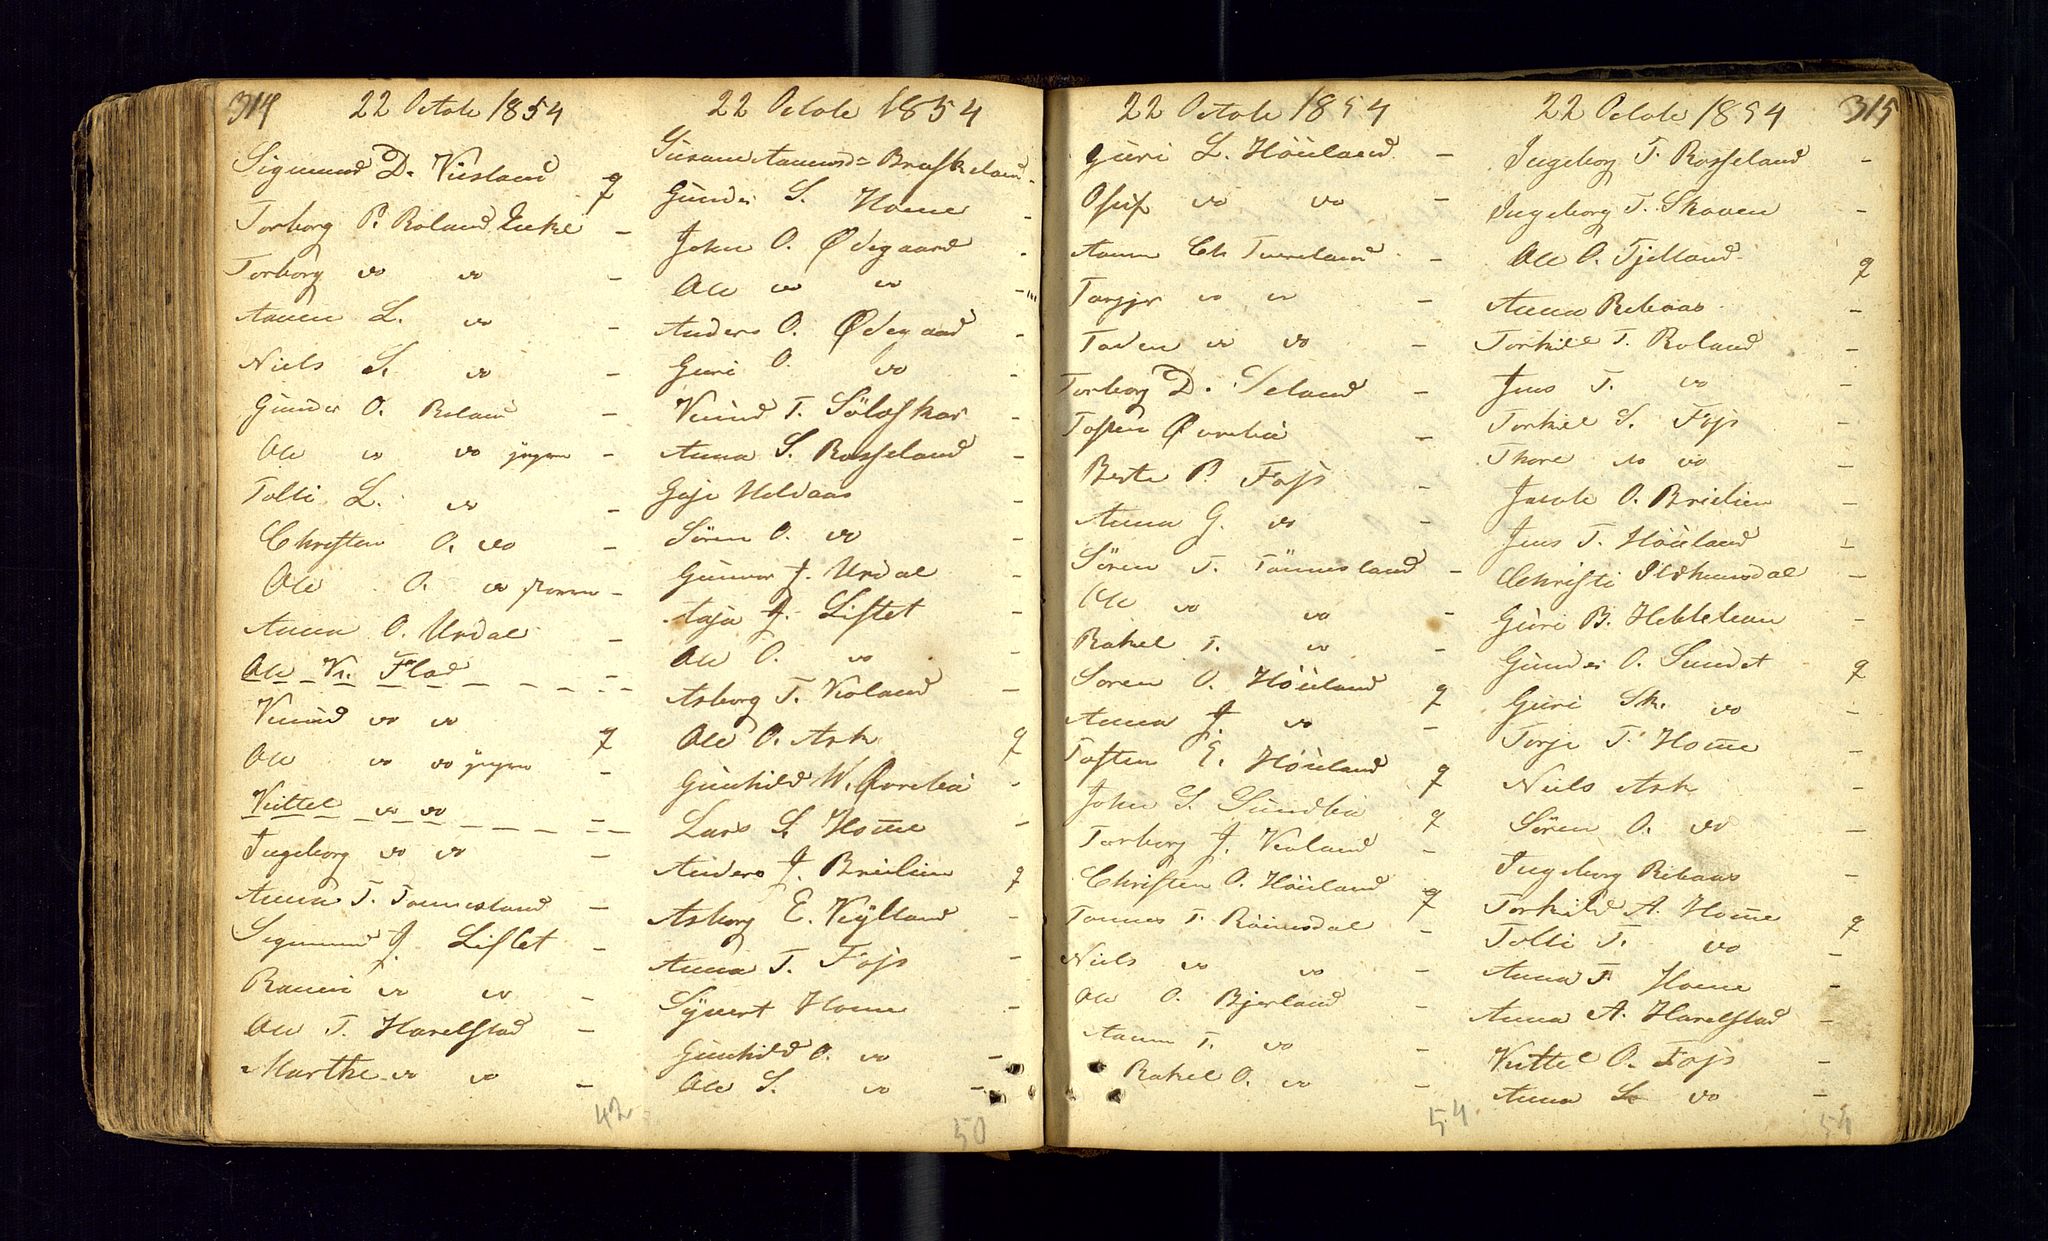 314
22 Octob 1854
Sigmund D. Viisland q
Torborg P. Roland Enke -
Torborg do do -
Aanen L. do -
Niels S. do -
Gunder O. Roland -
Ole do do yngre -
Tolli L. do -
Christen O. do -
Ole O. do -
Anna O. Urdal -
Ole Kn. Flad
Knud do do q
Ole do do yngre -
Kittel do do
Ingeborg do do -
Anna T. Tonnesland -
Sigmund J. Liflet -
Rannei do do -
Ole T. Harelstad -
Marthe do do -
42
22 Octob 1854
Susanne Aanensd= Bruskeland -
Gunder S. Home -
John O. Ødegaard -
Ole do do -
Anders O. Ødegaard -
Guri O. do -
Knud T. Söloskar -
Anna S. Rosseland -
Heldaas -
Sören O. do -
Gunvor J. Urdal -
Asja J. Liflet -
Ole O. do -
Asborg T. Kioland -
Ole O. Ask q
Gunhild W. Øvrebö -
Lars S. Home -
Anders J. Breilien q
Asborg E. Kylland -
Anna T. Foss -
Syvert Home -
Gunhild O. do -
Ole S. do -
50
22 Octob 1854
Guri L. Höiland -
Osuf do do -
Aanen Ch Tvereland -
Torgjer do do -
Tarjen do do -
Torborg D. Seland -
Tosten Øvrebö -
Berte P. Foss -
Anna G. do -
Sören T. Tönnesland -
Ole do do -
Rakel T. do -
Soren O. Höiland q
Anna J. do -
Tosten E. Höiland q
John S. Sundbö q
Torborg J. Kioland -
Christen O. Höiland q
Tonnes T. Röinesdal -
Niels do do -
Ole O. Bjerland -
Aanen T. do -
Rakel O. do -
54
22 Octob 1854
315
Ingeborg T. Rosseland -
Ingeborg T. Skoven -
Ole O. Fjelland q
Anna Ribaas -
Torkild T. Roland -
Jens T. do -
Torkel S. Foss -
Thore do do -
Jacob O. Breilien -
Jens T. Höiland -
Christi -
Guri B. -
Gunder O. Sundet q
Guri Sk. do -
Torje T. Home -
Niels Ask -
Sören O. do -
Ingeborg Ribaas -
Torkild A. Home q
Tolli T. do -
Anna T. Home -
Anna A. Harelstad -
Kittel O. Foss -
Anna S. do -
54